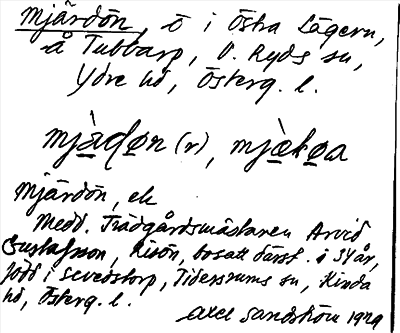 Mjärdön, ö i Östra Lägern,
å Tubbarp, V. Ryds sn,
Ydre hd, Österg. l.
mjàdøn (r), mjètøa
Mjärdön, ek
Medd. Trädgårdsmästaren Arvid
Gustafsson, Risön, bosatt därst. i 54 år,
född i Sevedstorp, Tidersrums sn, Kinda
hd, Österg. l.
Axel Sandström 1929